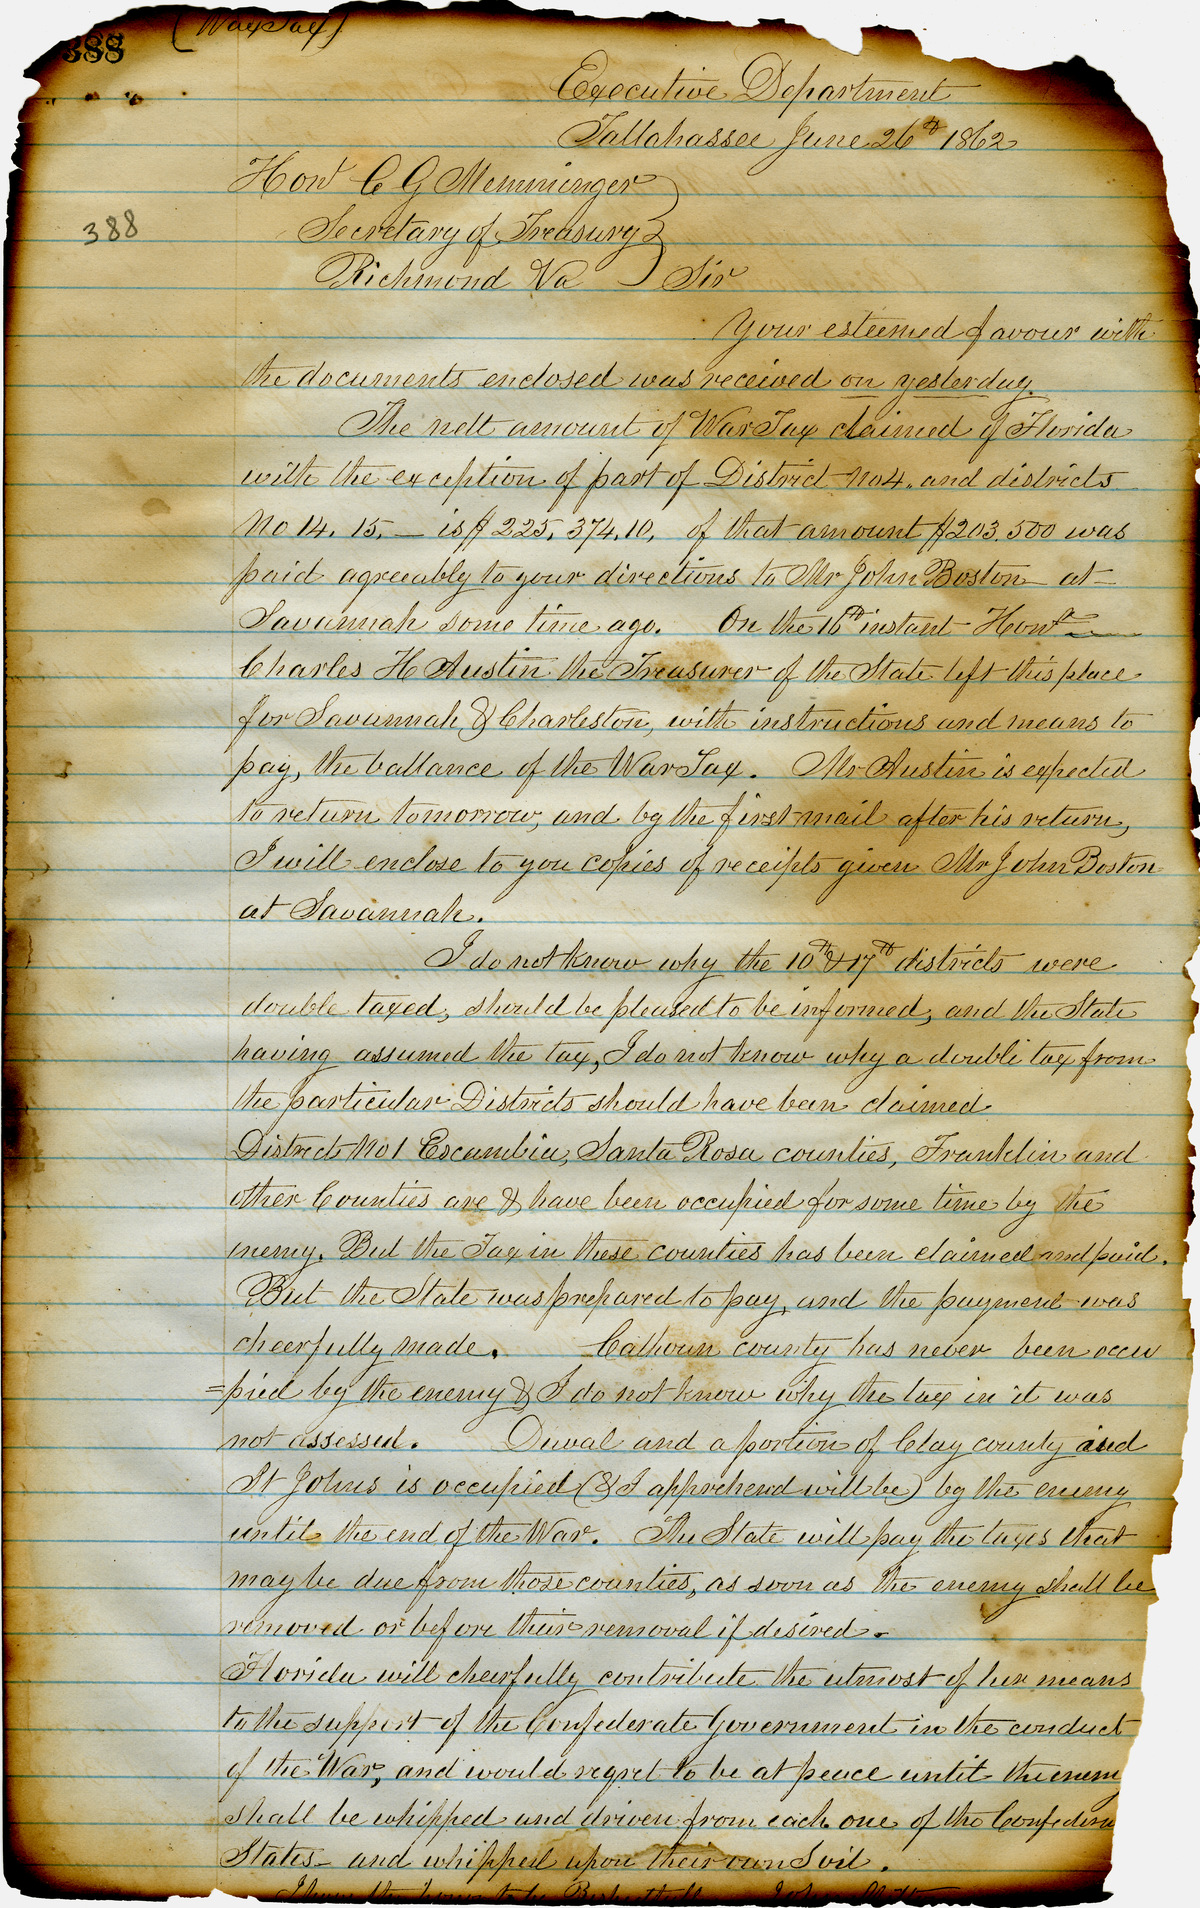 (War Tax)
388
Executive Department
Tallahassee June 26th 1862
Honl C G Memminger
388
Secretary of Treasury
Richmond Va Sir
Your esteemed favour with
the documents enclosed was received on yesterday.
The nett amount of War Tax claimed of Florida
with the exception of part of District No 4. and districts
No 14. 15. — is $225,374,10, of that amount $203.500 was
paid agreeably to your directions to Mr John Boston at
Savannah some time ago. On the 16th instant Honl
Charles H Austin the Treasurer of the State left this place
for Savannah & Charleston, with instructions and means to
pay, the ballance of the War Tax. Mr Austin is expected
to return tomorrow, and by the first mail after his return,
I will enclose to you copies of receipts given Mr John Boston
at Savannah.
I do not know why the 10th & 17th districts were
double taxed, should be pleased to be informed, and the State
having assumed the tax, I do not know why a double tax from
the particular Districts should have been claimed
District No 1 Escambia, Santa Rosa counties, Franklin and
other Counties are & have been occupied for some time by the
enemy. But the Tax in these counties has been claimed and paid.
But the State was prepared to pay, and the payment was
cheerfully made. Calhoun county has never been occu
=pied by the enemy & I do not know why the tax in it was
not assessed. Duval and a portion of Clay county and
St Johns is occupied (& I apprehend will be) by the enemy
until the end of the War. The State will pay the taxes that
may be due from those counties, as soon as the enemy shall be
removed or before their removal if desired.
Florida will cheerfully contribute the utmost of her means
to the support of the Confederate Government in the conduct
of the War, and would regret to be at peace until the enem
shall be whipped and driven from each one of the Confedera
States and whipped upon their own Soil.
I have the honor to be